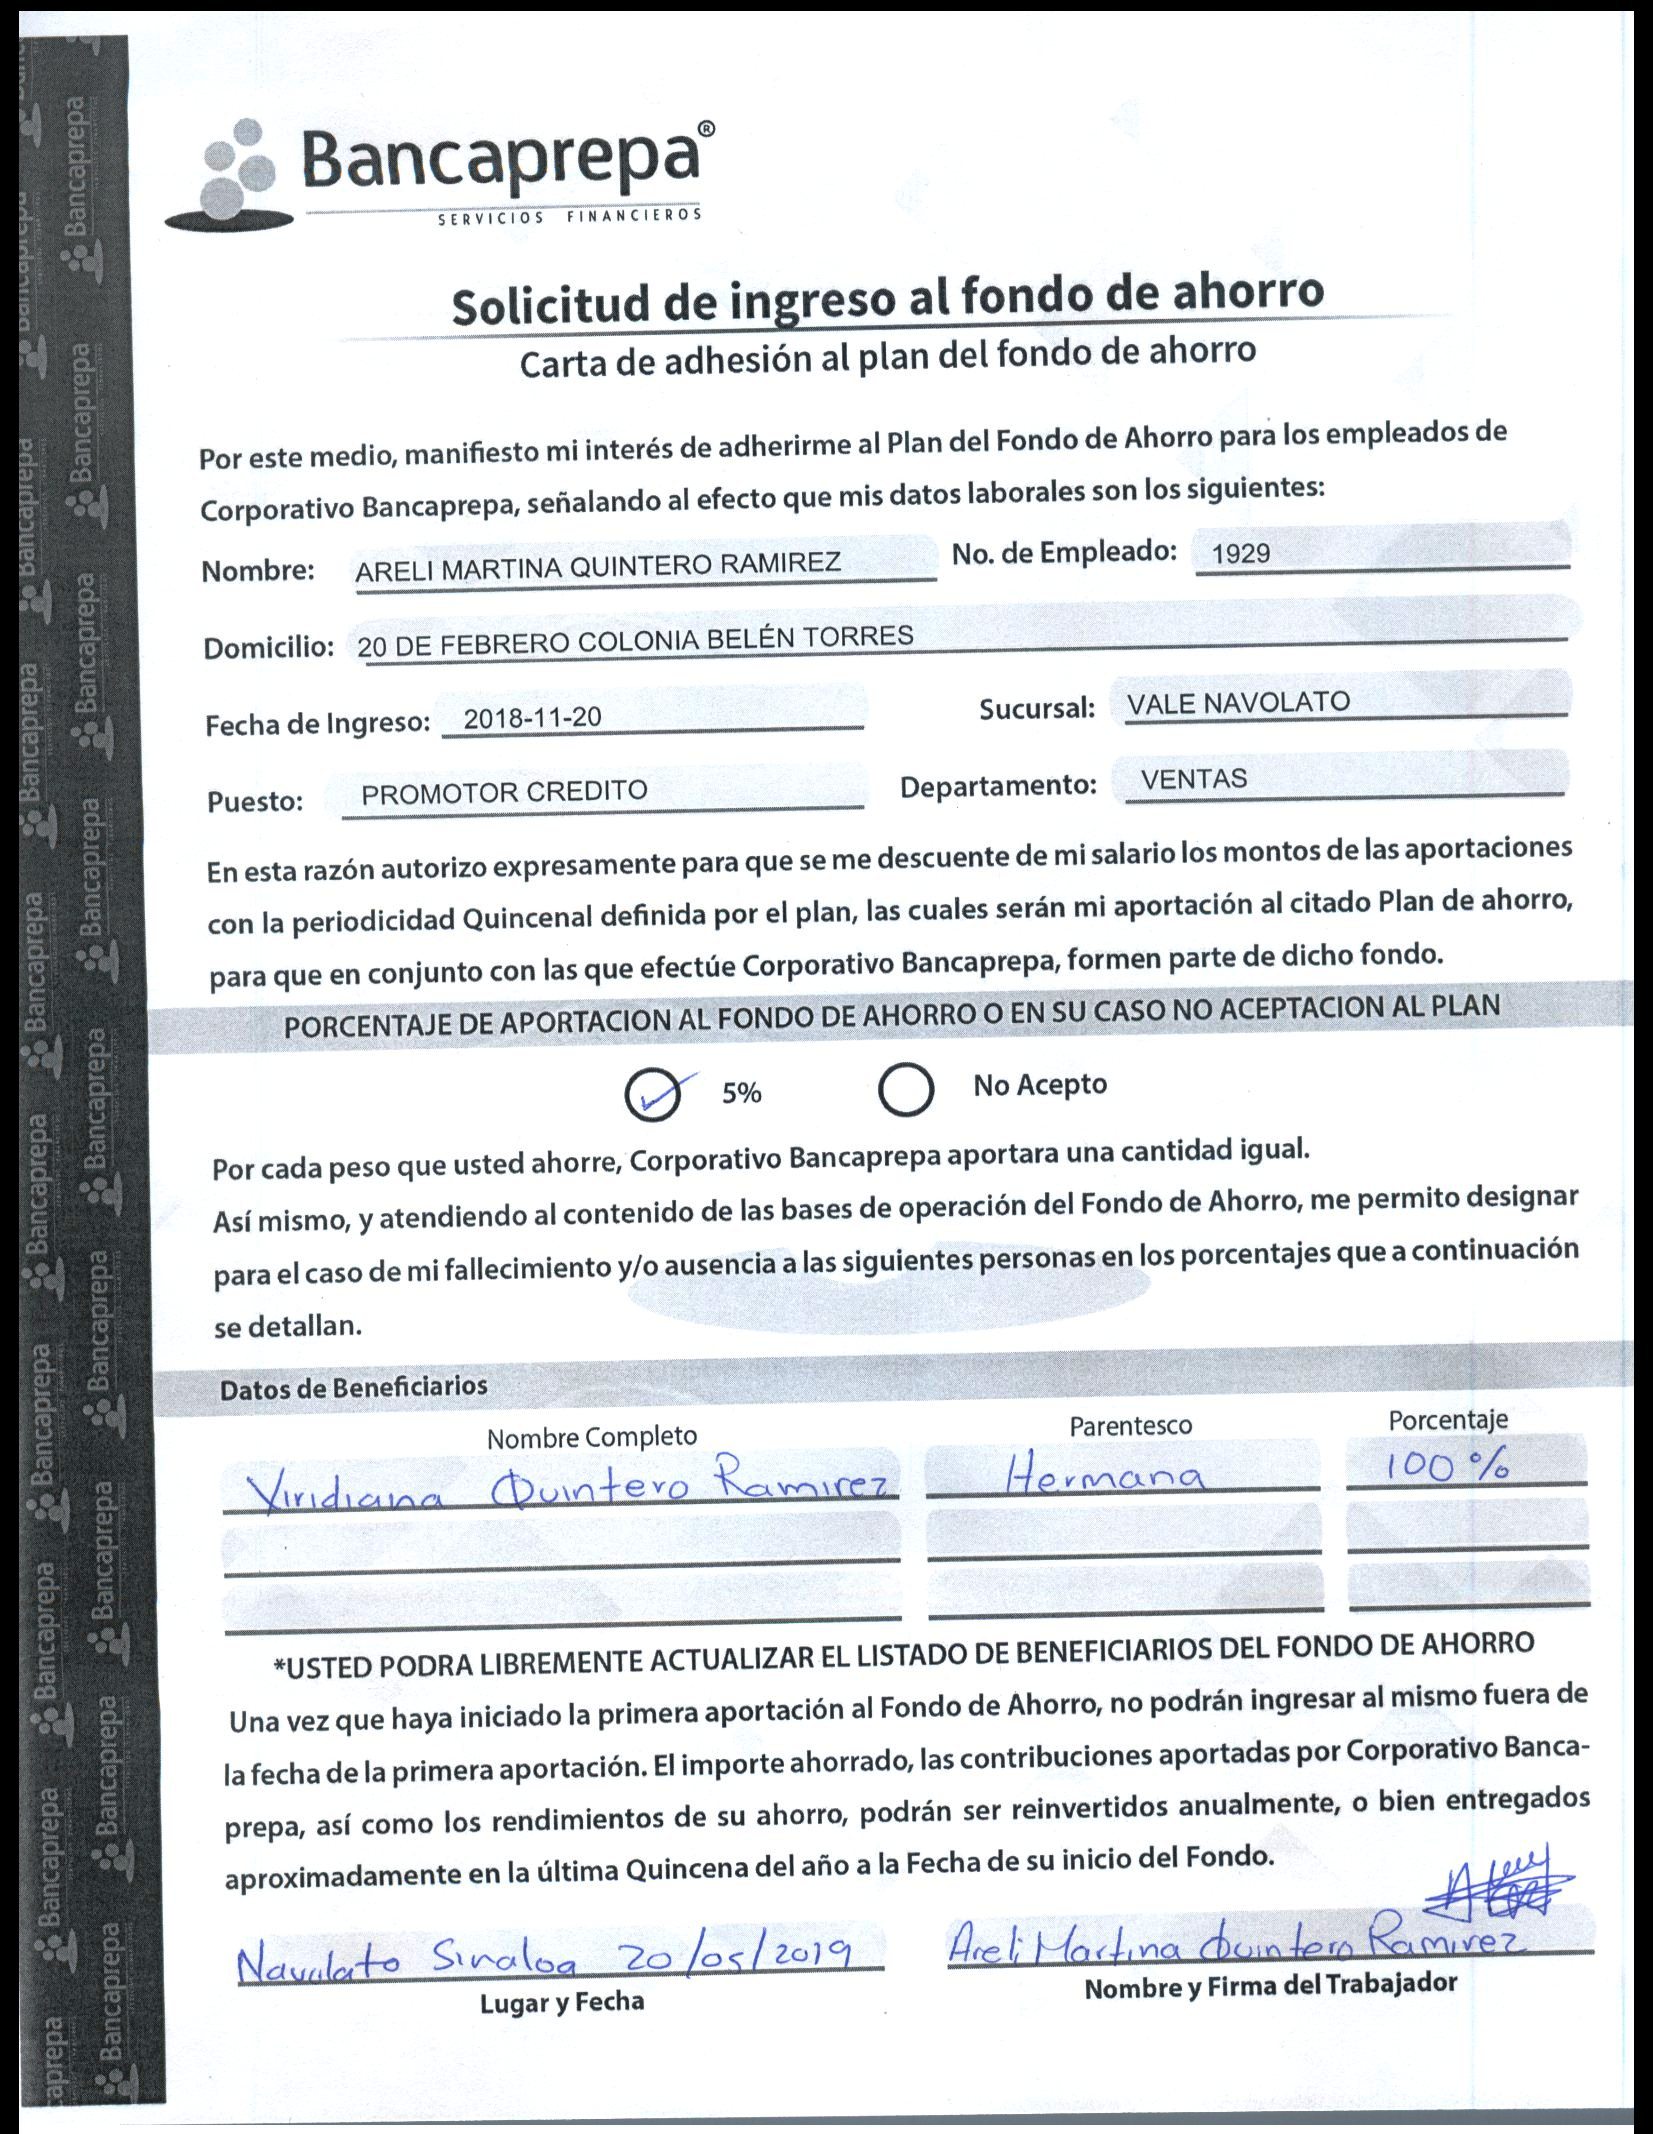 Bancaprepa®
SERVICIOS FINANCIEROS
Solicitud de ingreso al fondo de ahorro
Carta de adhesión al plan del fondo de ahorro
Por este medio, manifiesto mi interés de adherirme al Plan del Fondo de Ahorro para los empleados de
Corporativo Bancaprepa, señalando al efecto que mis datos laborales son los siguientes:
Nombre: ARELI MARTINA QUINTERO RAMIREZ No. de Empleado: 1929
Domicilio: 20 DE FEBRERO COLONIA BELÉN TORRES
Fecha de Ingreso: 2018-11-20 Sucursal: VALE NAVOLATO
Puesto: PROMOTOR CREDITO Departamento: VENTAS
En esta razón autorizo expresamente para que se me descuente de mi salario los montos de las aportaciones
con la periodicidad Quincenal definida por el plan, las cuales serán mi aportación al citado Plan de ahorro,
para que en conjunto con las que efectúe Corporativo Bancaprepa, formen parte de dicho fondo.
PORCENTAJE DE APORTACION AL FONDO DE AHORRO O EN SU CASO NO ACEPTACION AL PLAN
5% No Acepto
Por cada peso que usted ahorre, Corporativo Bancaprepa aportara una cantidad igual.
Así mismo, y atendiendo al contenido de las bases de operación del Fondo de Ahorro, me permito designar
para el caso de mi fallecimiento y/o ausencia a las siguientes personas en los porcentajes que a continuación
se detallan.
Datos de Beneficiarios
Nombre Completo Parentesco Porcentaje
Viridiana Quintero Ramirez Hermana 100%
*USTED PODRA LIBREMENTE ACTUALIZAR EL LISTADO DE BENEFICIARIOS DEL FONDO DE AHORRO
Una vez que haya iniciado la primera aportación al Fondo de Ahorro, no podrán ingresar al mismo fuera de
la fecha de la primera aportación. El importe ahorrado, las contribuciones aportadas por Corporativo Banca-
prepa, así como los rendimientos de su ahorro, podrán ser reinvertidos anualmente, o bien entregados
aproximadamente en la última Quincena del año a la Fecha de su inicio del Fondo.
Navolato Sinaloa 20/05/2019 Areli Martina Quintero Ramirez
Lugar y Fecha Nombre y Firma del Trabajador